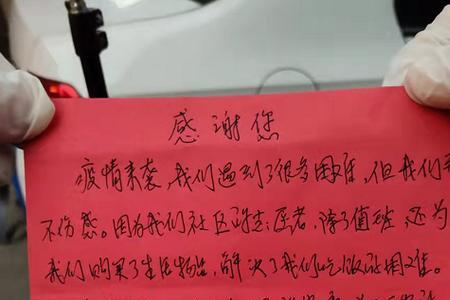 感谢您
疫情来袭,我们遇到了很多困难,但我们
不伤感。因为我们社区医生;医者,除了值班,还为
我们购买了生活物品,解决了我们吃饭的困难。